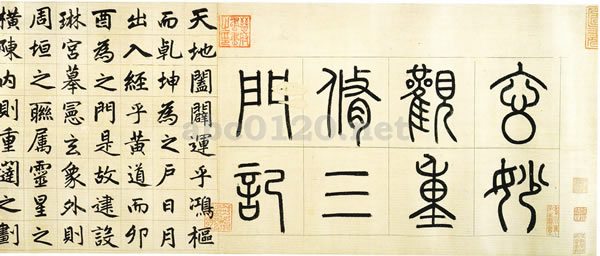 玄妙
觀重
脩三
門記
天地闔闢運乎鴻樞
而乾坤為之戶日月
出入經乎黃道而卯
酉為之門是故建設
琳宮摹憲玄象外則
周垣之聯属靈星之
横陳内則重闥之劃
abc0120.net